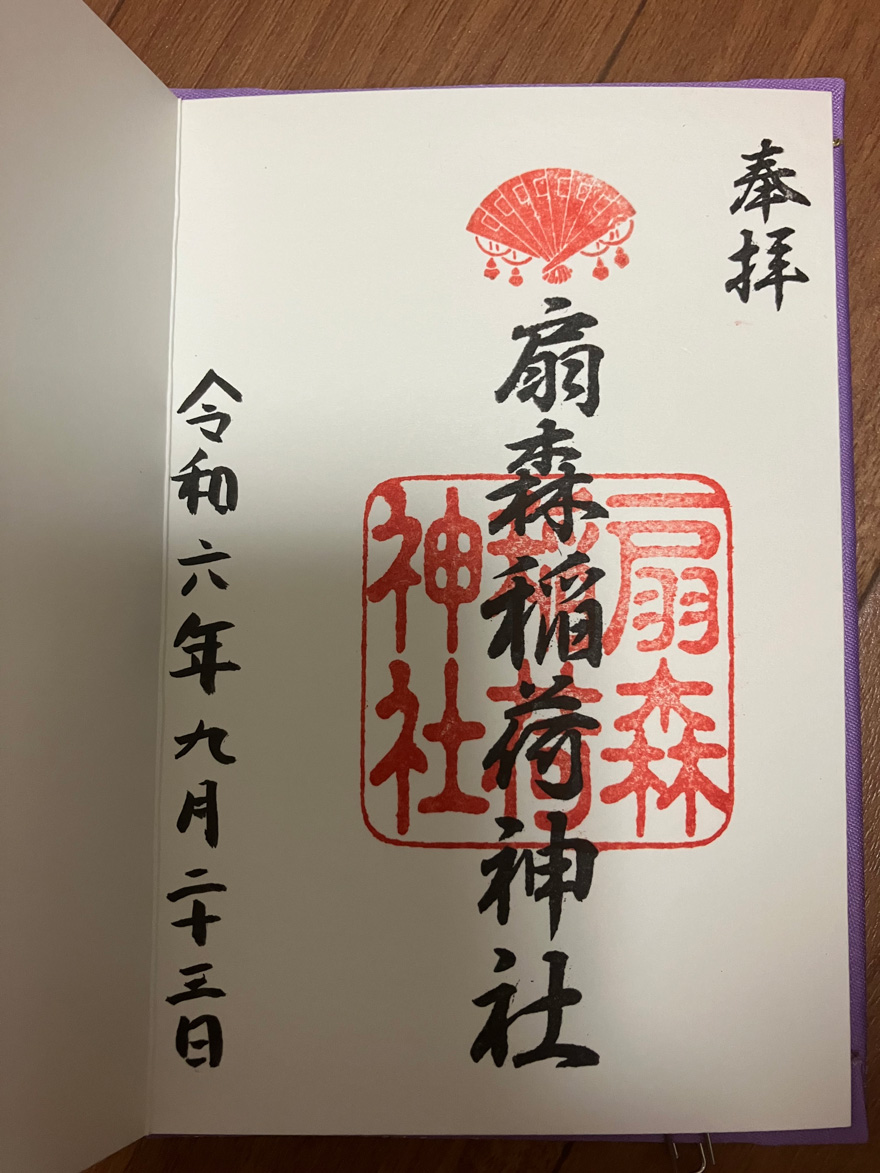 奉拝
扇森稲荷神社
扇森
稲荷
神社
令和六年九月二十三日